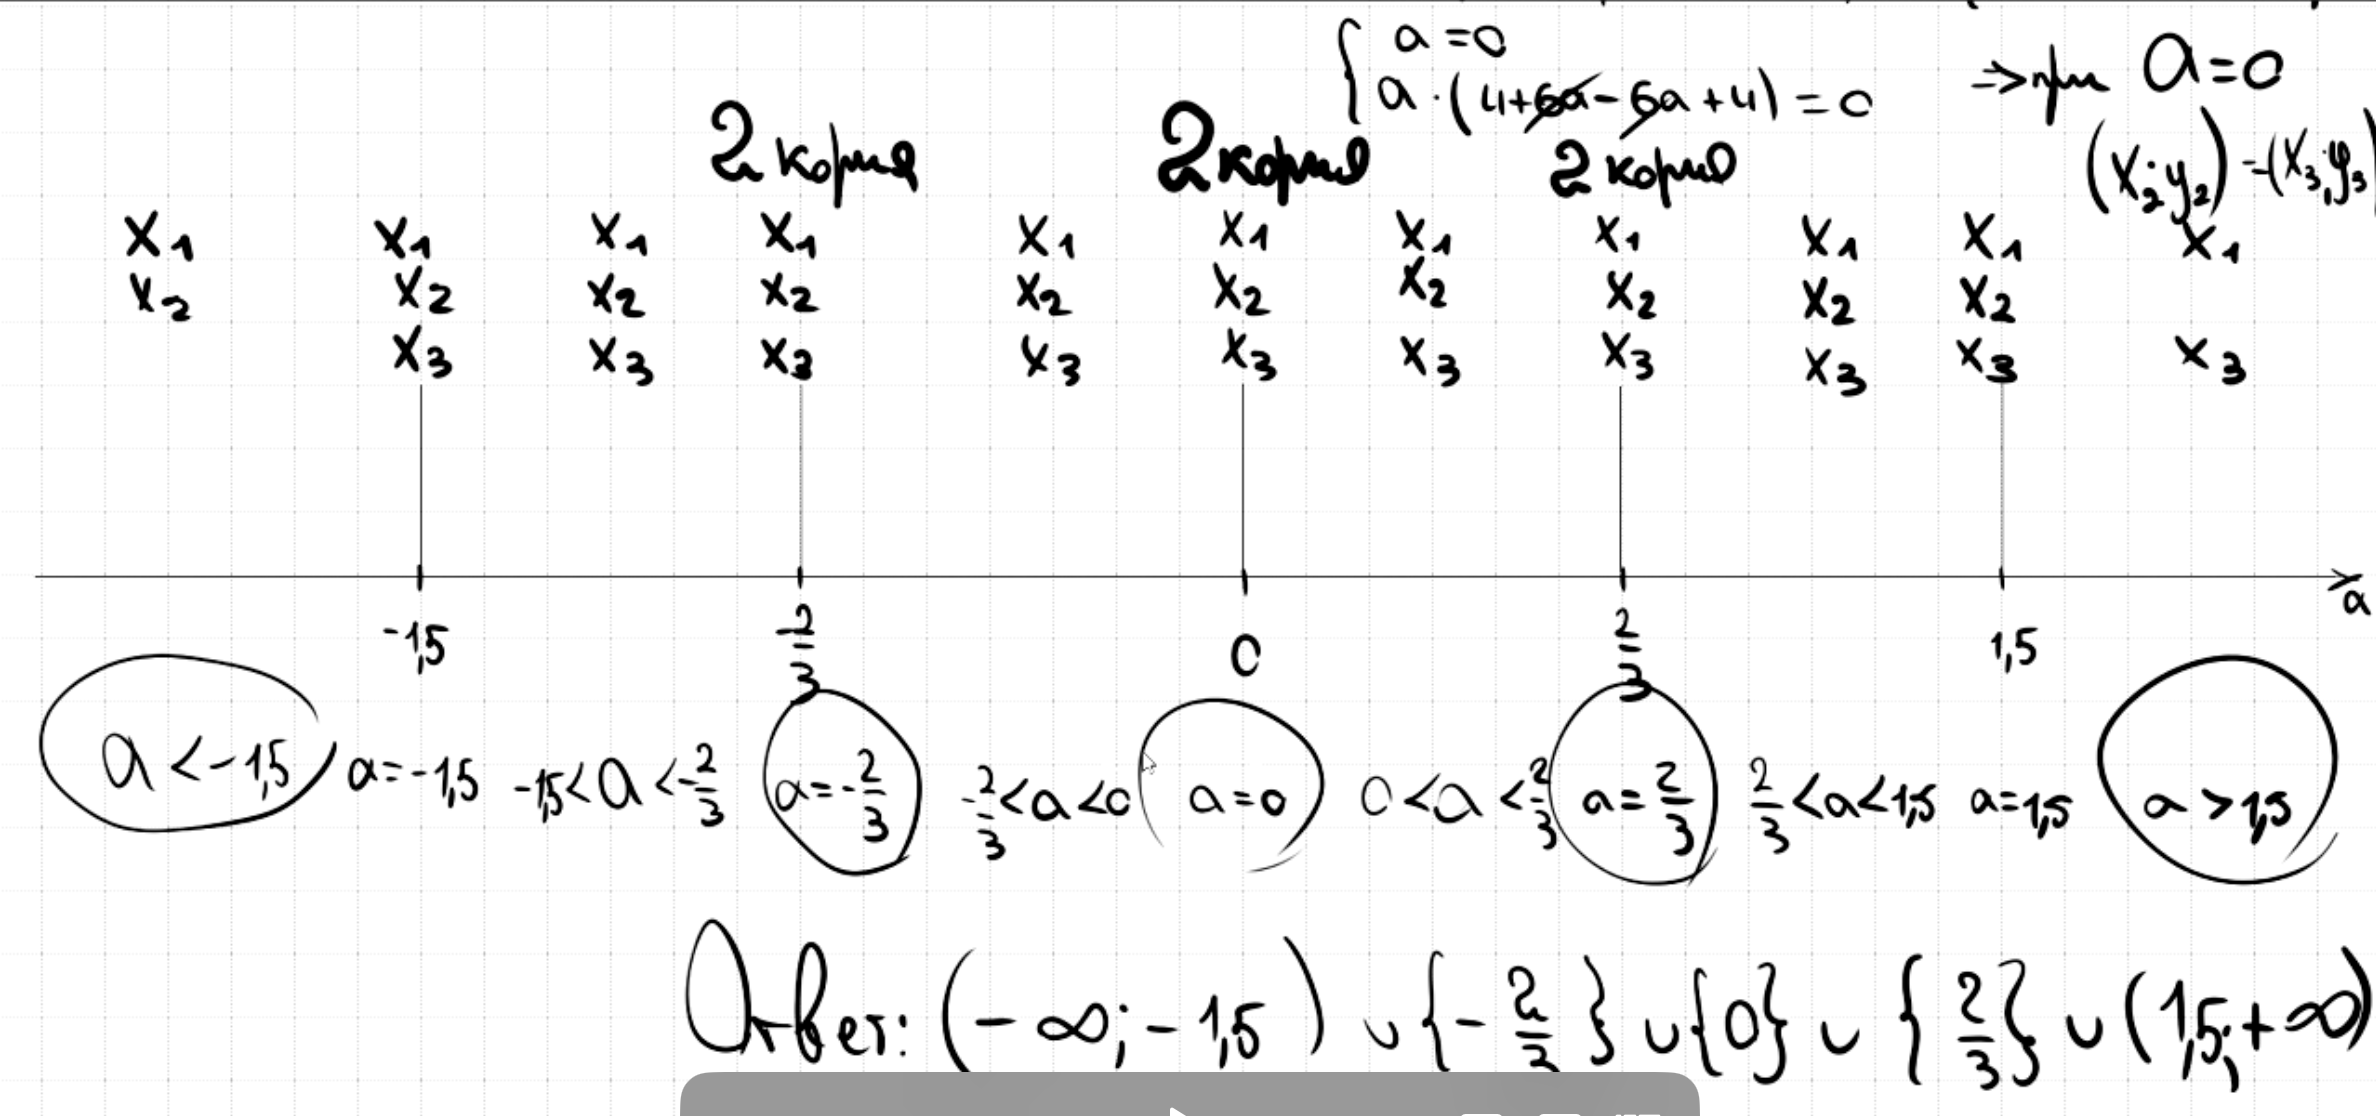 { a = 0
a · (4+6a - 6a + 4) = 0
⇒ при a = 0
(x₂; y₂) = (x₃; y₃)
2 корня 2 корня 2 корня
x₁ x₁ x₁ x₁ x₁ x₁ x₁ x₁ x₁ x₁ x₁
x₂ x₂ x₂ x₂ x₂ x₂ x₂ x₂ x₂ x₂
x₃ x₃ x₃ x₃ x₃ x₃ x₃ x₃ x₃ x₃
-1,5 -2/3 0 2/3 1,5 a
a < -1,5 a = -1,5 -1,5 < a < -2/3 a = -2/3 -2/3 < a < 0 a = 0 0 < a < 2/3 a = 2/3 2/3 < a < 1,5 a = 1,5 a > 1,5
Ответ: (-∞; -1,5) ∪ {-2/3} ∪ {0} ∪ {2/3} ∪ (1,5; +∞)